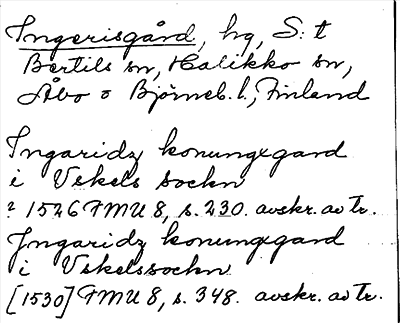 Ingerisgård, hg, S:t
Bertils sn, Halikko sn,
Åbo o Björneb. l., Finland
Ingaridz konungxgard
i Vskels sockn
? 1526 FMU 8, s. 230. avskr. av tr.
Ingaridz konungxgard
i Vskelssockn
[1530] FMU 8, s. 348. avskr. av tr.